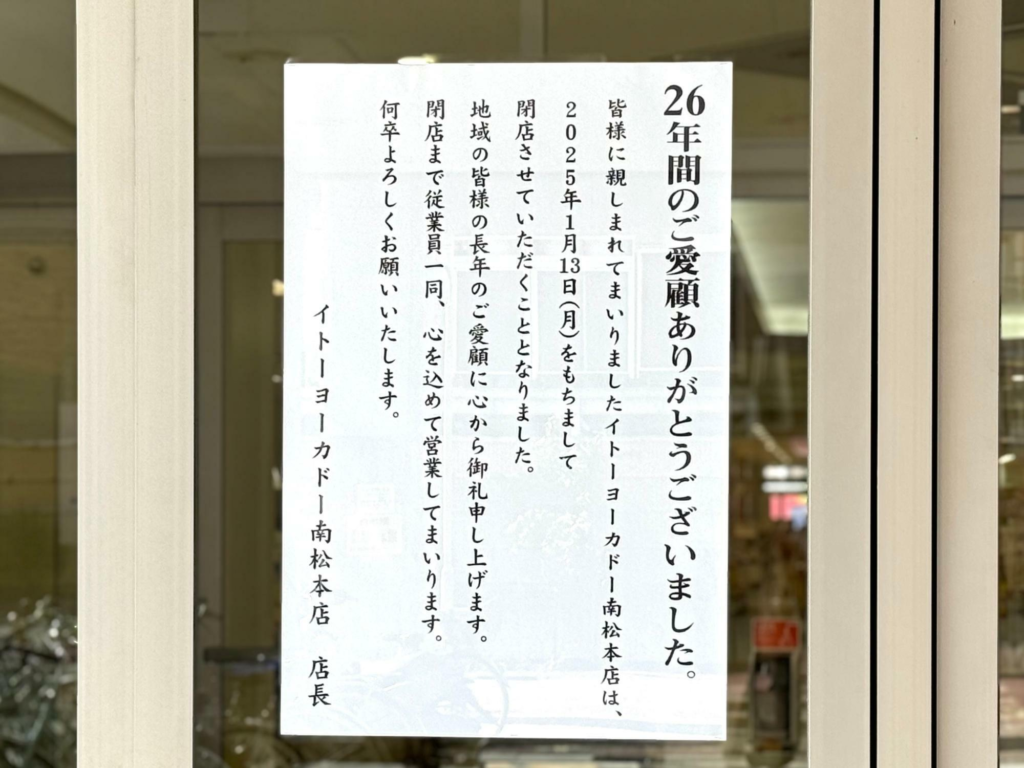 26年間のご愛顧ありがとうございました。
皆様に親しまれてまいりましたイトーヨーカドー南松本店は、
2025年1月13日(月)をもちまして
閉店させていただくこととなりました。
地域の皆様の長年のご愛顧に心から御礼申し上げます。
閉店まで従業員一同、心を込めて営業してまいります。
何卒よろしくお願いいたします。
イトーヨーカドー南松本店　店長